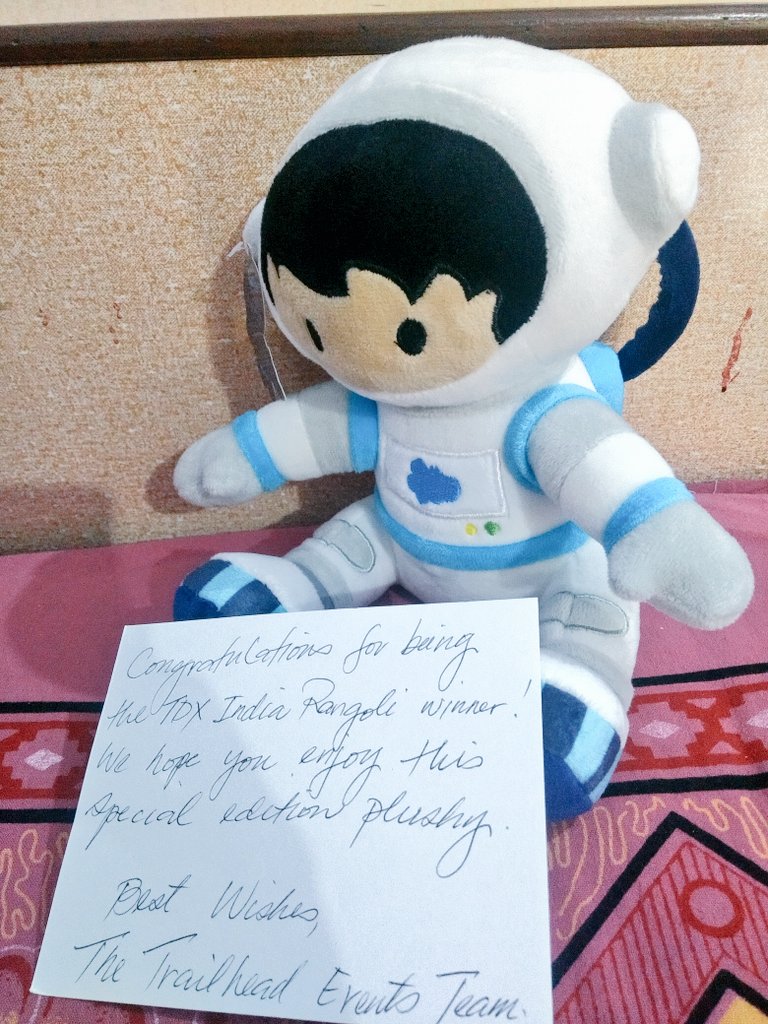 Congratulations for being
the TDX India Rangoli winner!
We hope you enjoy this
special edition plushy.
Best Wishes,
The Trailhead Events Team.